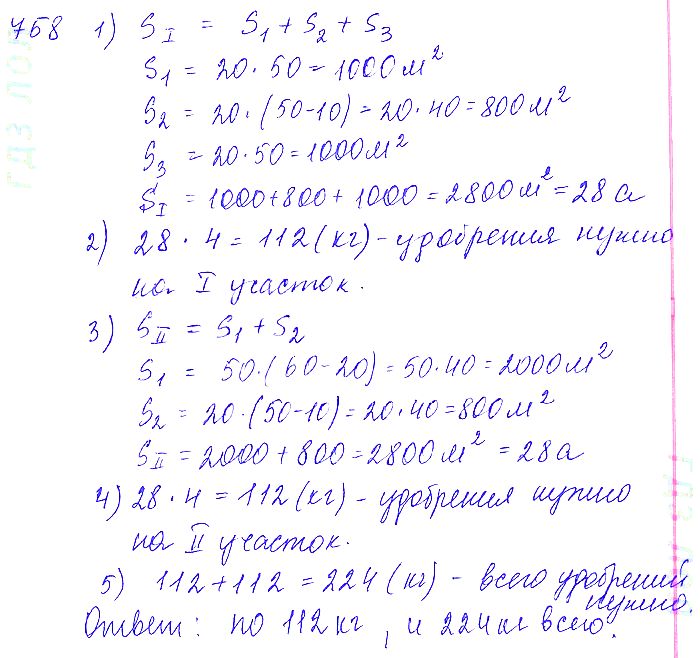 758 1) S_I = S₁ + S₂ + S₃
S₁ = 20 · 50 = 1000 м²
S₂ = 20 · (50-10) = 20 · 40 = 800 м²
S₃ = 20 · 50 = 1000 м²
S_I = 1000+800+1000 = 2800 м² = 28 а
2) 28 · 4 = 112 (кг) - удобрения нужно
на I участок.
3) S_II = S₁ + S₂
S₁ = 50·(60-20) = 50·40 = 2000 м²
S₂ = 20·(50-10) = 20·40 = 800 м²
S_II = 2000 + 800 = 2800 м² = 28 а
4) 28 · 4 = 112 (кг) - удобрения нужно
на II участок.
5) 112 + 112 = 224 (кг) - всего удобрений
нужно.
Ответ: по 112 кг, и 224 кг всего.